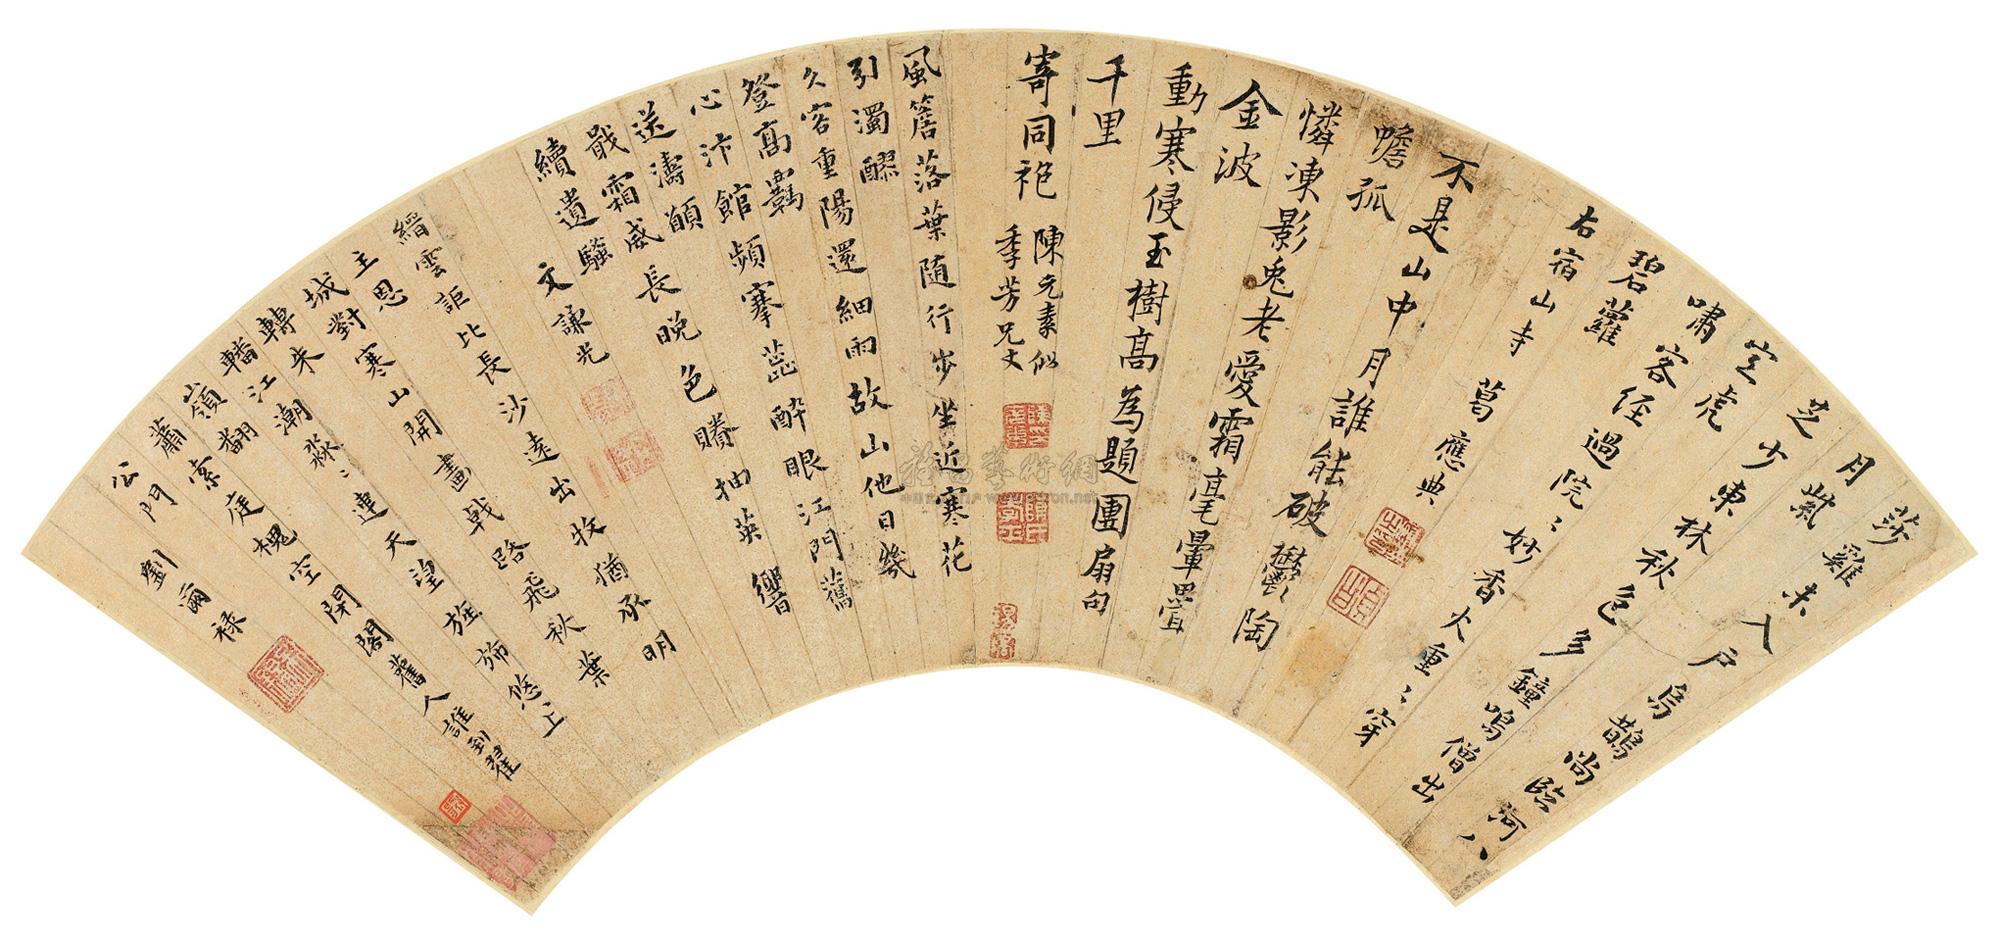 莎雞未入戶烏鵲尚臨河八
月紫
芝少東林秋色多鐘鳴僧出
定虎
嘯客徑過院〻妙香火重〻穿
碧蘿
右宿山寺 葛應典
不是山中月誰能破鬱陶
蟾孤
憐凍影兎老愛霜毫暈罾
金波
動寒侵玉樹高為題團扇句
千里
寄同袍 陳元素似
季芳兄丈
風簷落葉随行步坐近寒花
引濁醪
久客重陽還細雨故山他日幾
登高羈
心汴館頻搴蕊醉眼江門舊
送濤
戢霜威長晚色賸抽英響
續遺騷 文謙光
縉雲詎比長沙遠出牧猶承明
主恩
城對寒山開畫戟路飛秋葉
轉朱
轓江潮淼〻連天望旌斾悠上
嶺翻
蕭索庭槐空閉閣舊人誰到翟
公門 劉爾祿